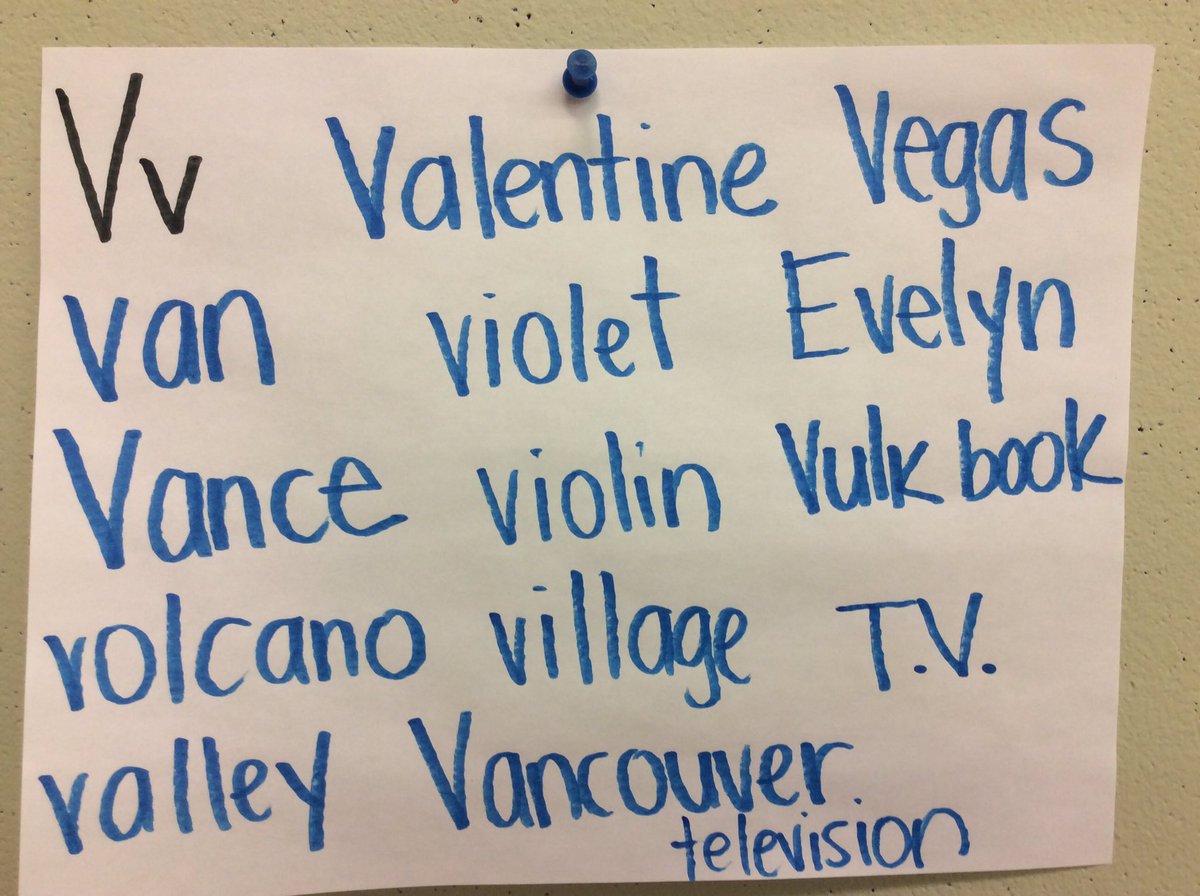 Vv Valentine Vegas
van violet Evelyn
Vance violin Vulk book
volcano village T.V.
valley Vancouver
television